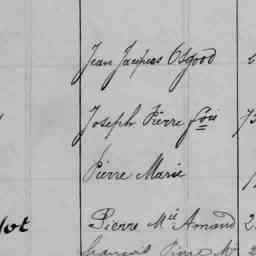 Jean Jacques Osgood
Joseph Pierre fois
Pierre Marie
Pierre Mie Amand
François Pierre